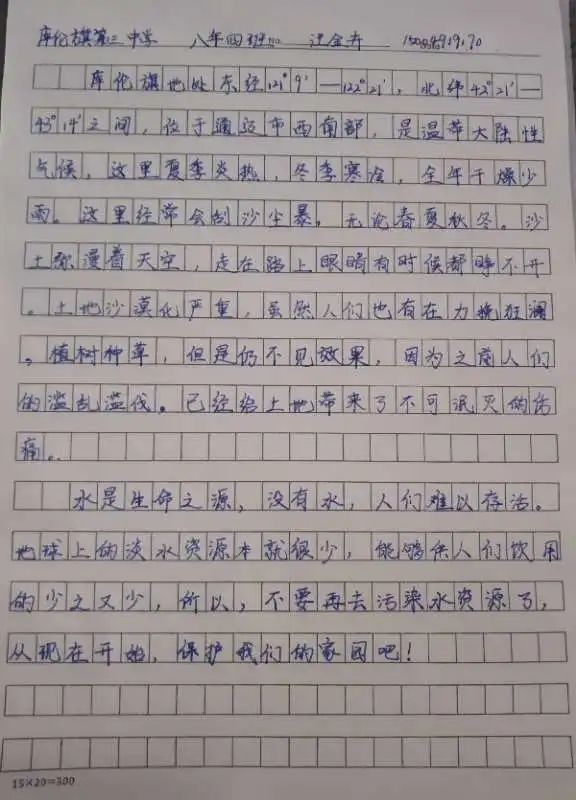 库伦旗第三中学 八年四班 汪金卉
库伦旗地处东经121°9′—122°21′,北纬42°21′—
43°14′之间,位于通辽市西南部,是温带大陆性
气候,这里夏季炎热,冬季寒冷,全年干燥少
雨。这里经常会刮沙尘暴,无论春夏秋冬。沙
土弥漫着天空,走在路上眼睛有时候都睁不开
。土地沙漠化严重,虽然人们也有在力挽狂澜
。植树种草,但是仍不见效果,因为之前人们
的滥乱滥伐。已经给土地带来了不可泯灭的伤
痛。
水是生命之源,没有水,人们难以存活。
地球上的淡水资源本就很少,能够供人们饮用
的少之又少,所以,不要再去污染水资源了,
从现在开始,保护我们的家园吧!
15×20=300